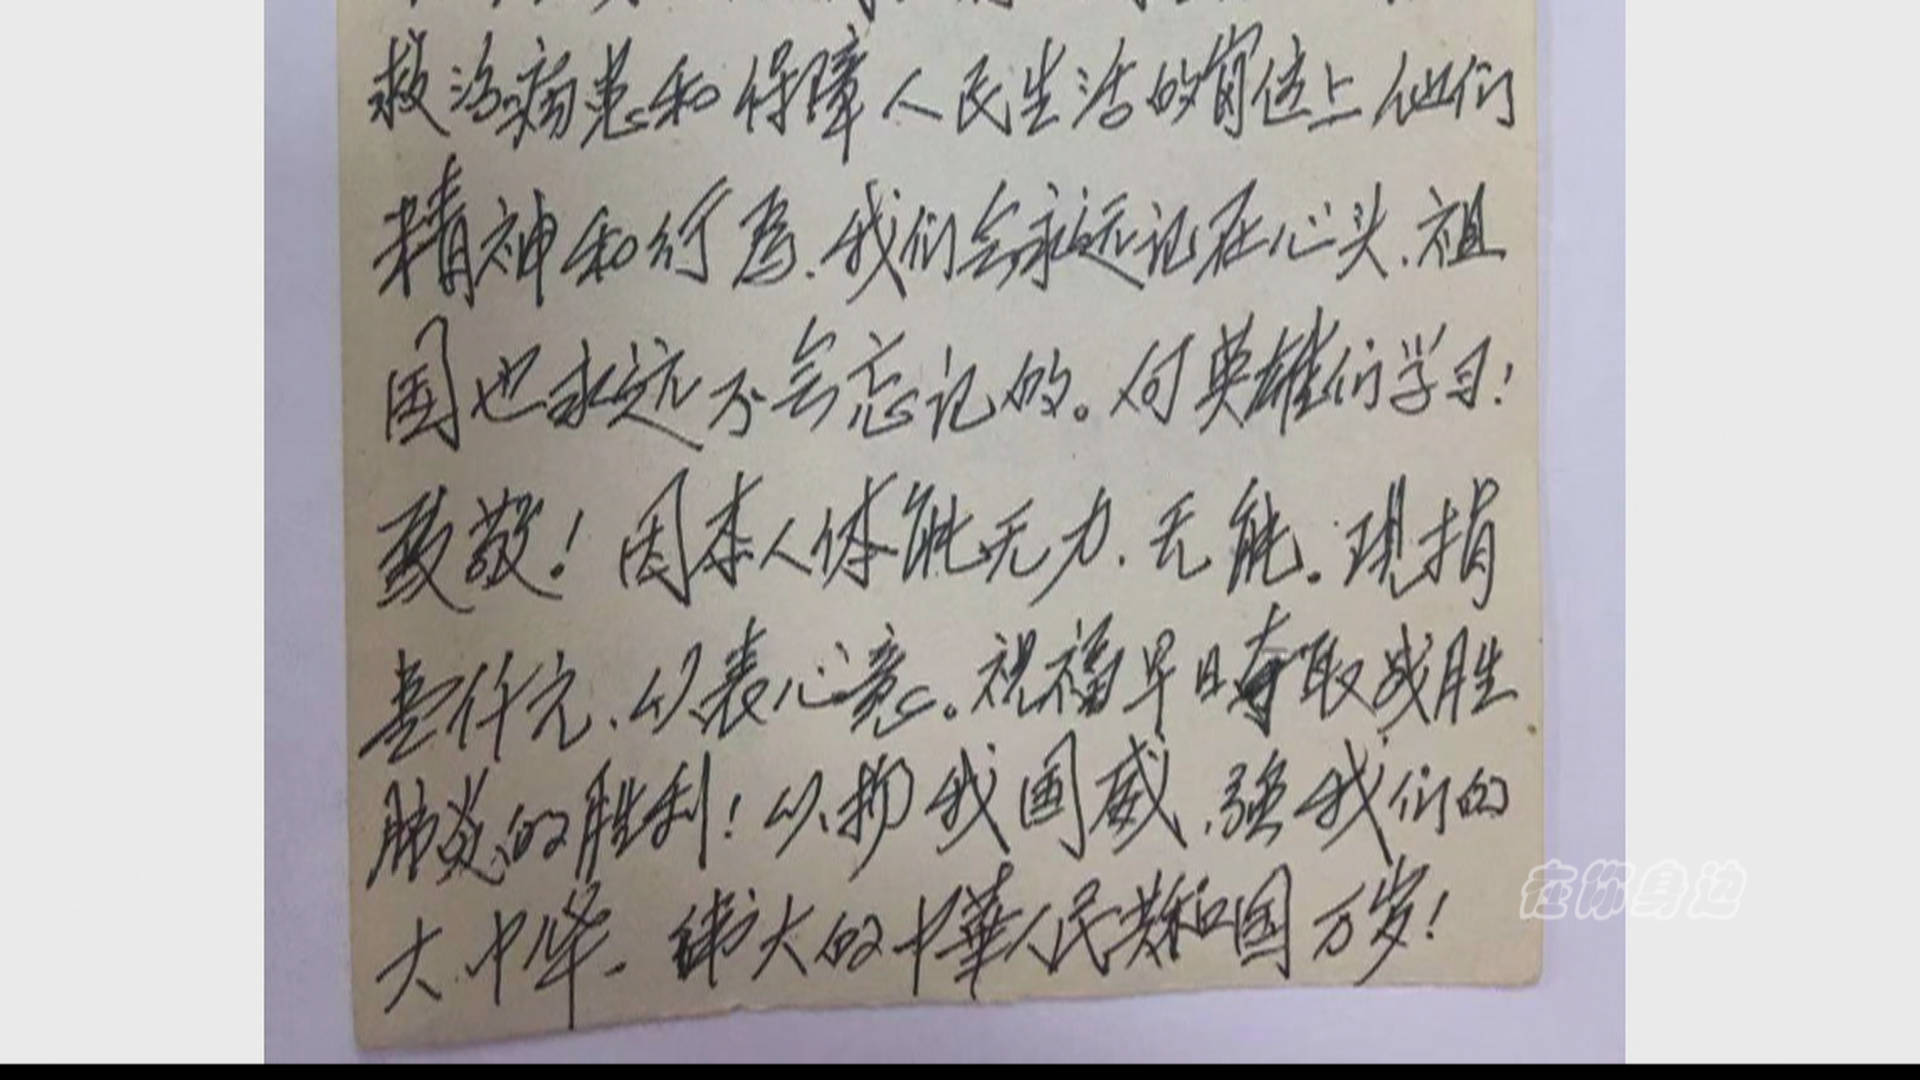 救治病患和保障人民生活的岗位上他们
精神和行为、我们会永远记在心头、祖
国也永远不会忘记的。向英雄们学习！
致敬！因本人体能无力、无能。现捐
壹仟元、以表心意。祝福早日夺取战胜
肺炎的胜利！以扬我国威、强我们的
大中华、伟大的中華人民共和国万岁！
在你身边